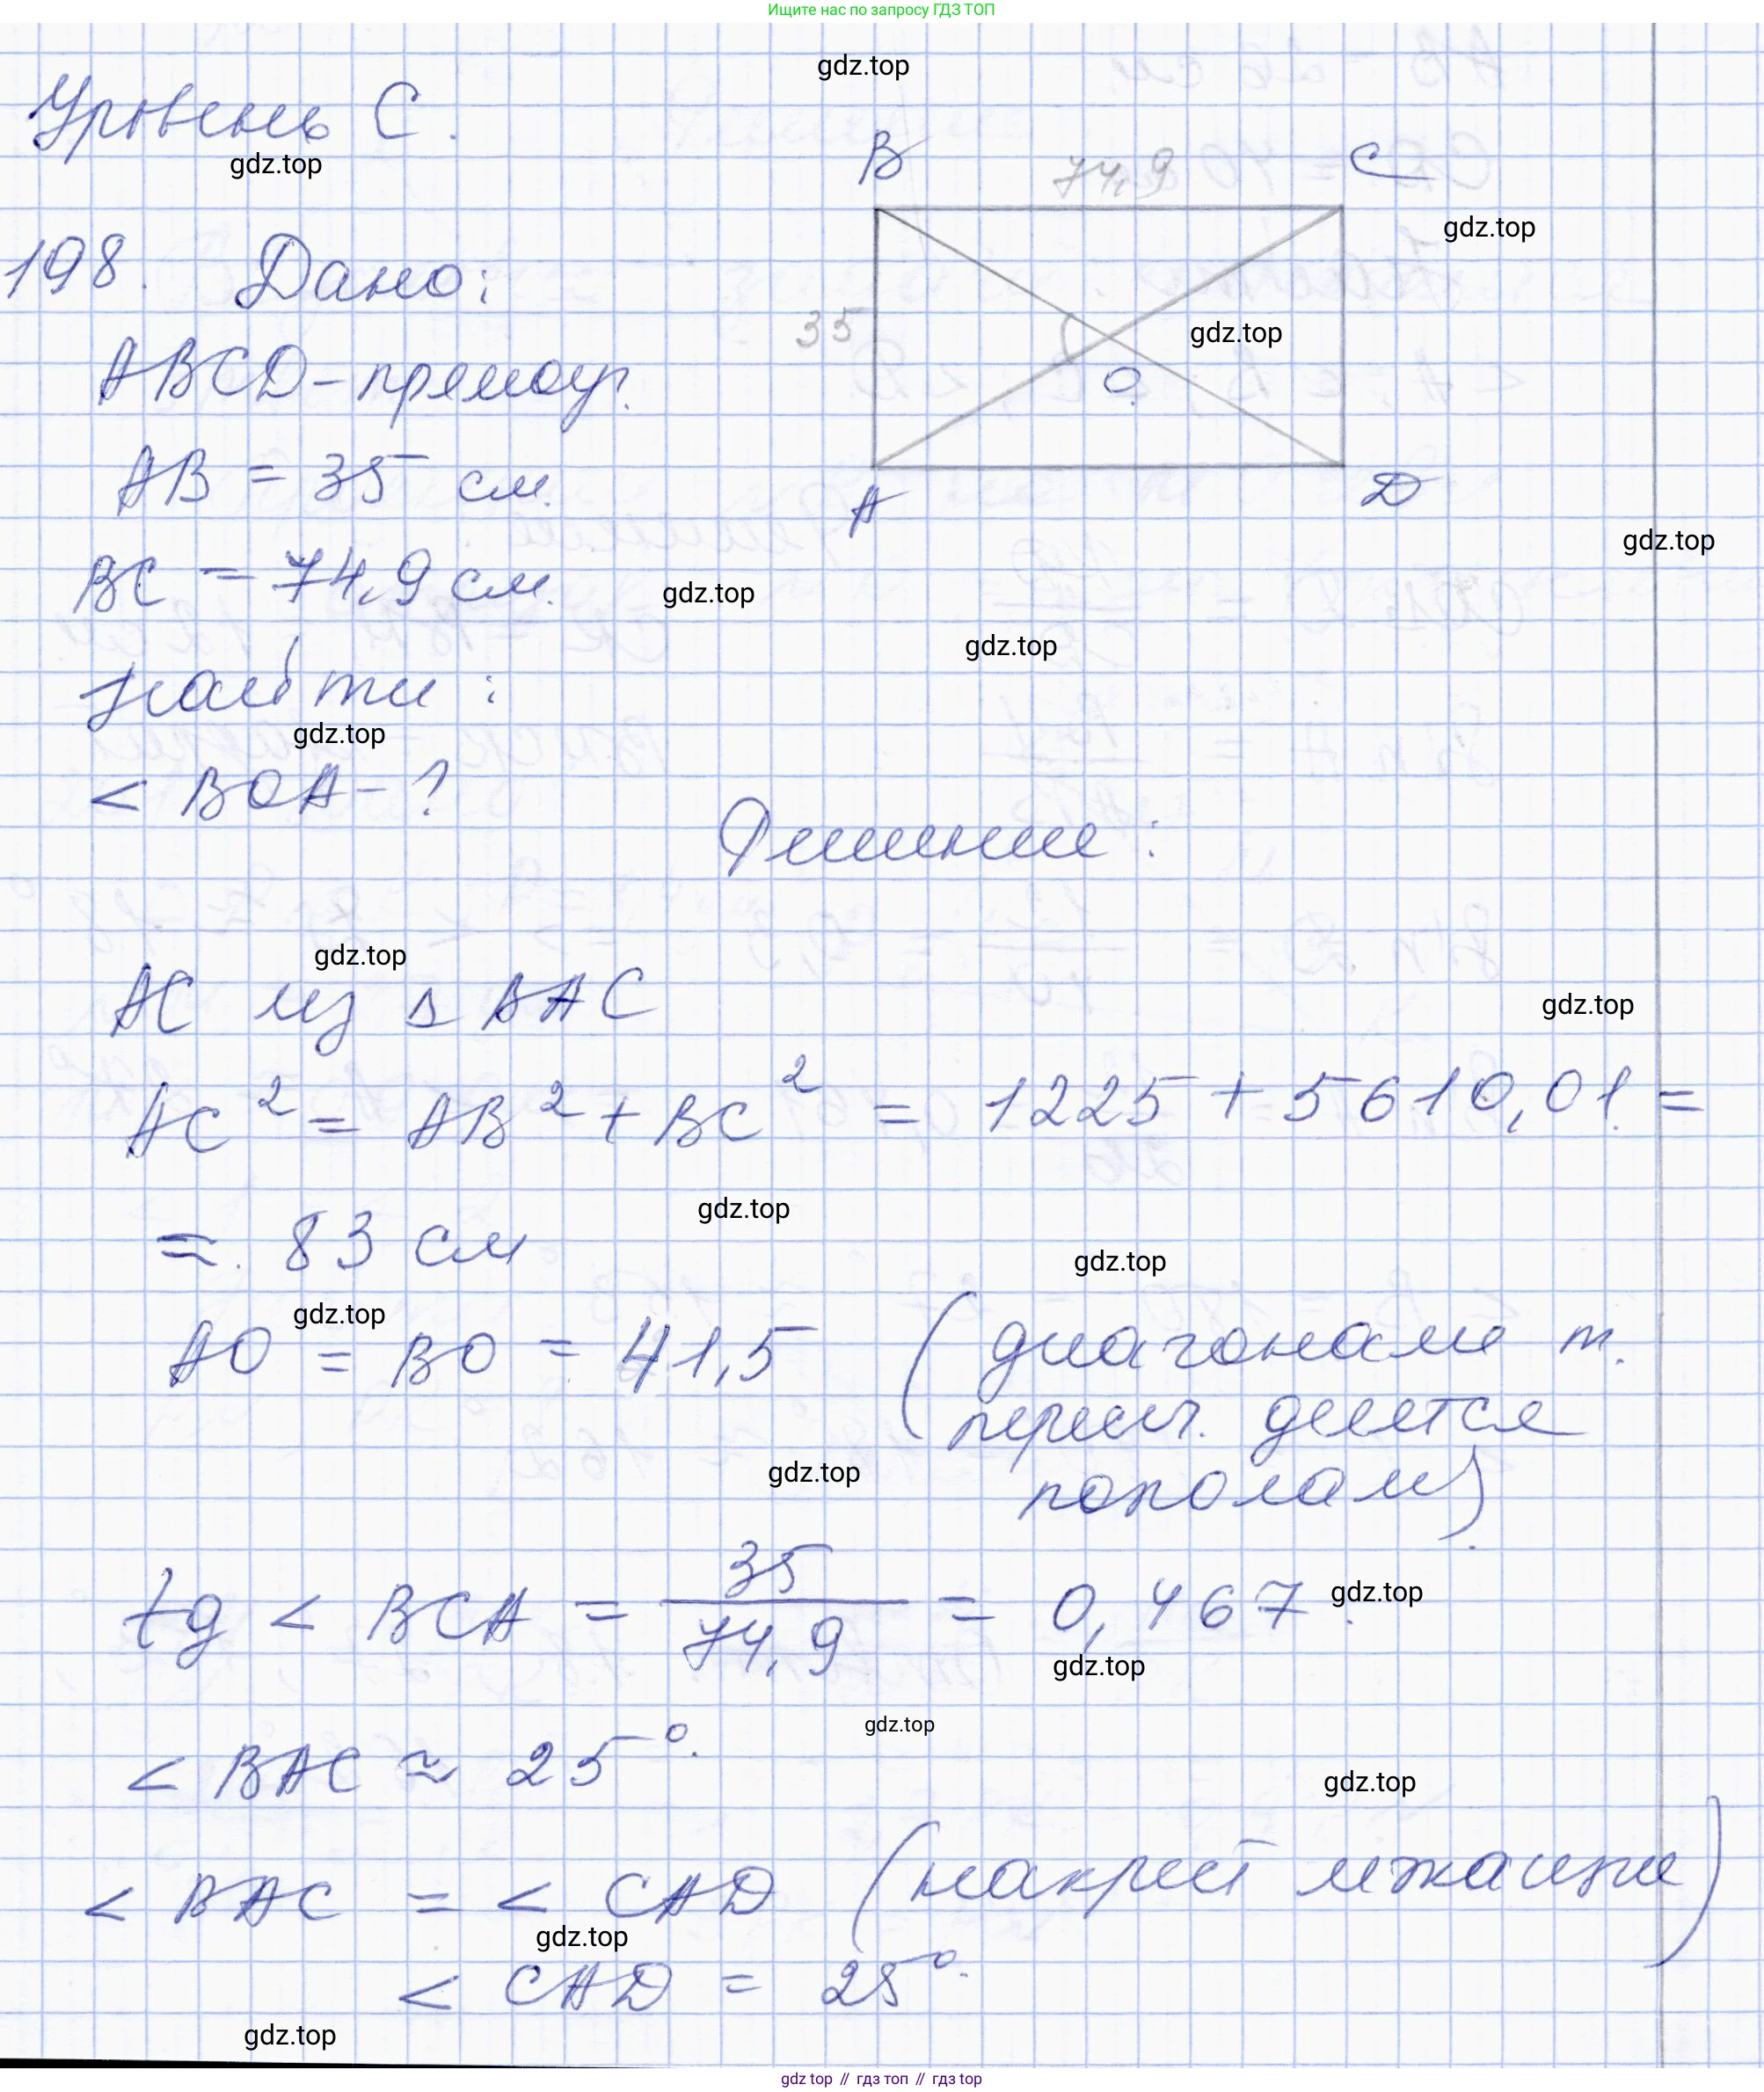 Ищите нас по запросу ГДЗ ТОП
gdz.top
Уровень С.
gdz.top
B 74,9 C
gdz.top
198. Дано:
35
gdz.top
ABCD - прямоуг.
O
AB = 35 см.
A D
gdz.top
BC = 74,9 см.
gdz.top
gdz.top
Найти:
gdz.top
< BOA - ?
Решение:
gdz.top
AC из Δ BAC
gdz.top
AC² = AB² + BC² = 1225 + 5610,01 =
gdz.top
≈ 83 см
gdz.top
gdz.top
AO = BO = 41,5 (диагонали т.
пересеч. делятся
gdz.top
пополам).
tg < BCA = 35/74,9 = 0,467.
gdz.top
gdz.top
gdz.top
< BAC ≈ 25°.
gdz.top
< BAC = < CAD (накрест лежащие)
gdz.top
< CAD = 25°.
gdz.top
gdz top // гдз топ // гдз top